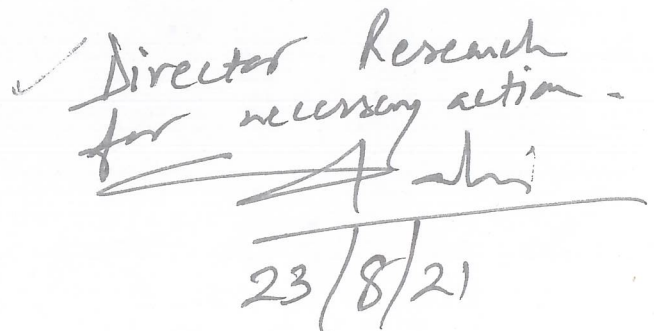 Director Research
for necessary action -
23/8/21